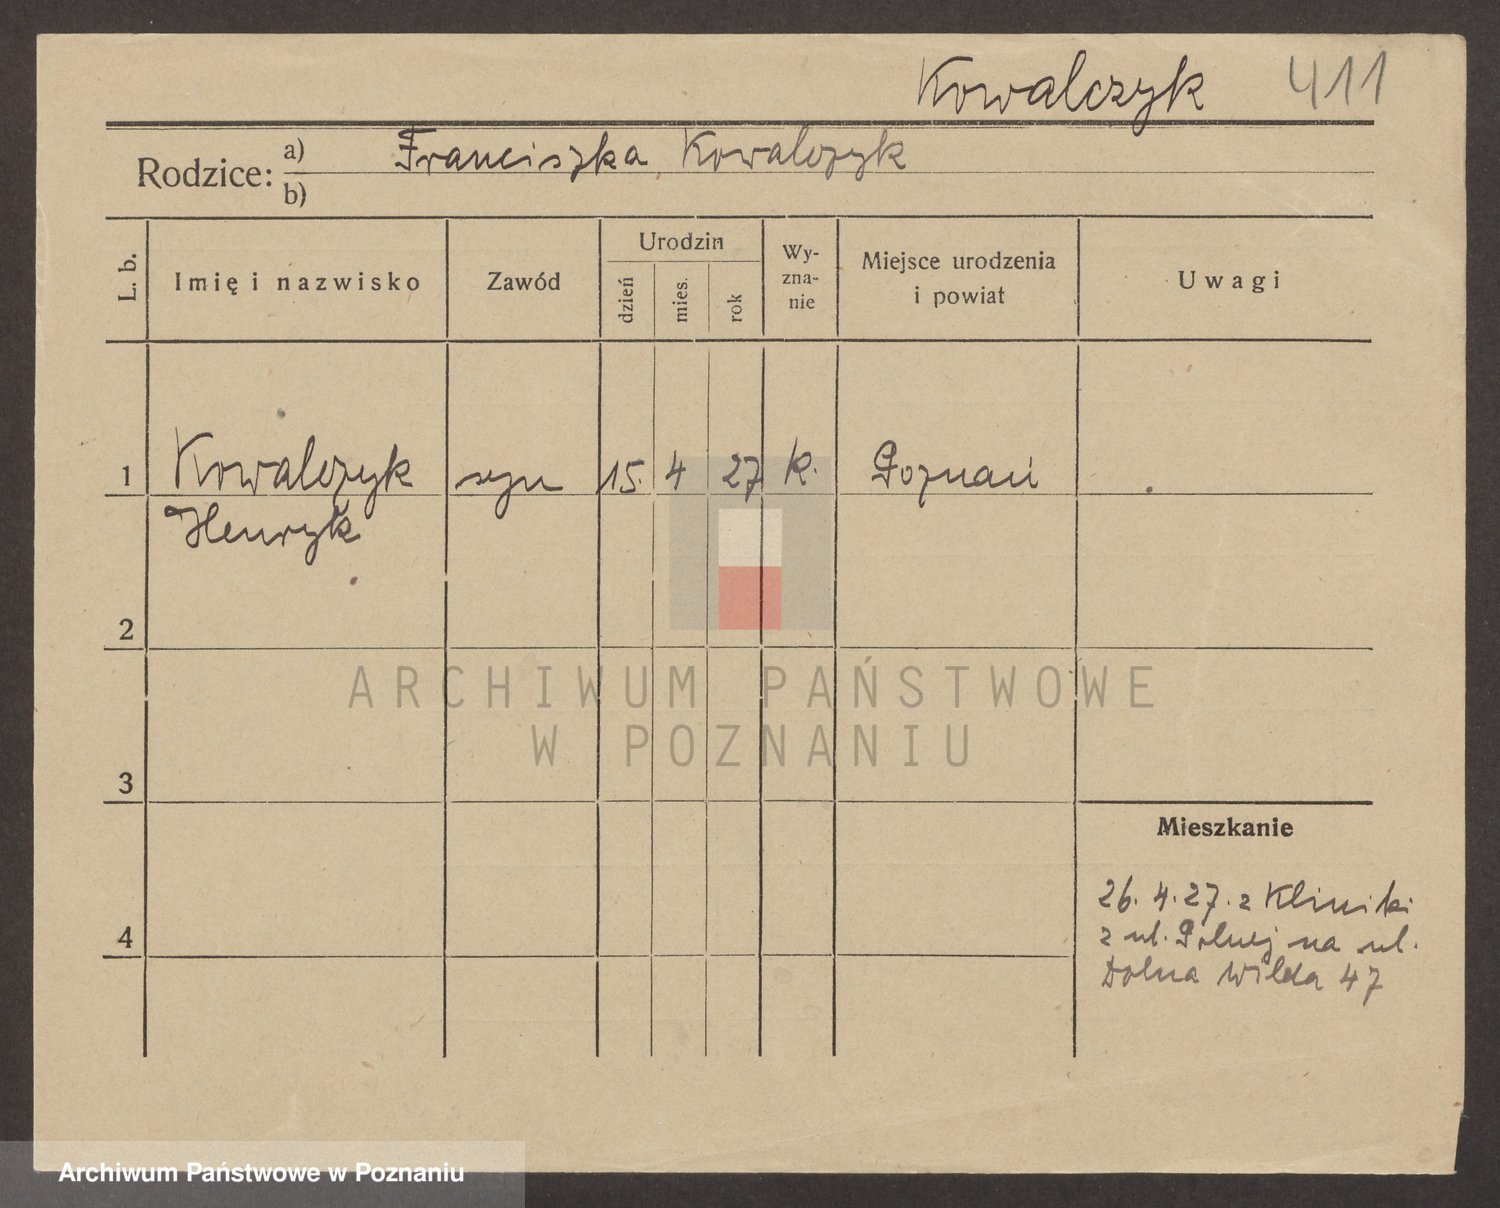 Kowalczyk 411
Rodzice: a) Franciszka Kowalczyk
b)
L. b. Imię i nazwisko Zawód Urodzin dzień mies. rok Wy-zna-nie Miejsce urodzenia i powiat Uwagi
1 Kowalczyk syn 15. 4 27 k. Poznań
Henryk
2
ARCHIWUM PAŃSTWOWE
W POZNANIU
3
Mieszkanie
26. 4. 27. z Kliniki
z ul. Polnej na ul.
4
Dolna Wilda 47
Archiwum Państwowe w Poznaniu